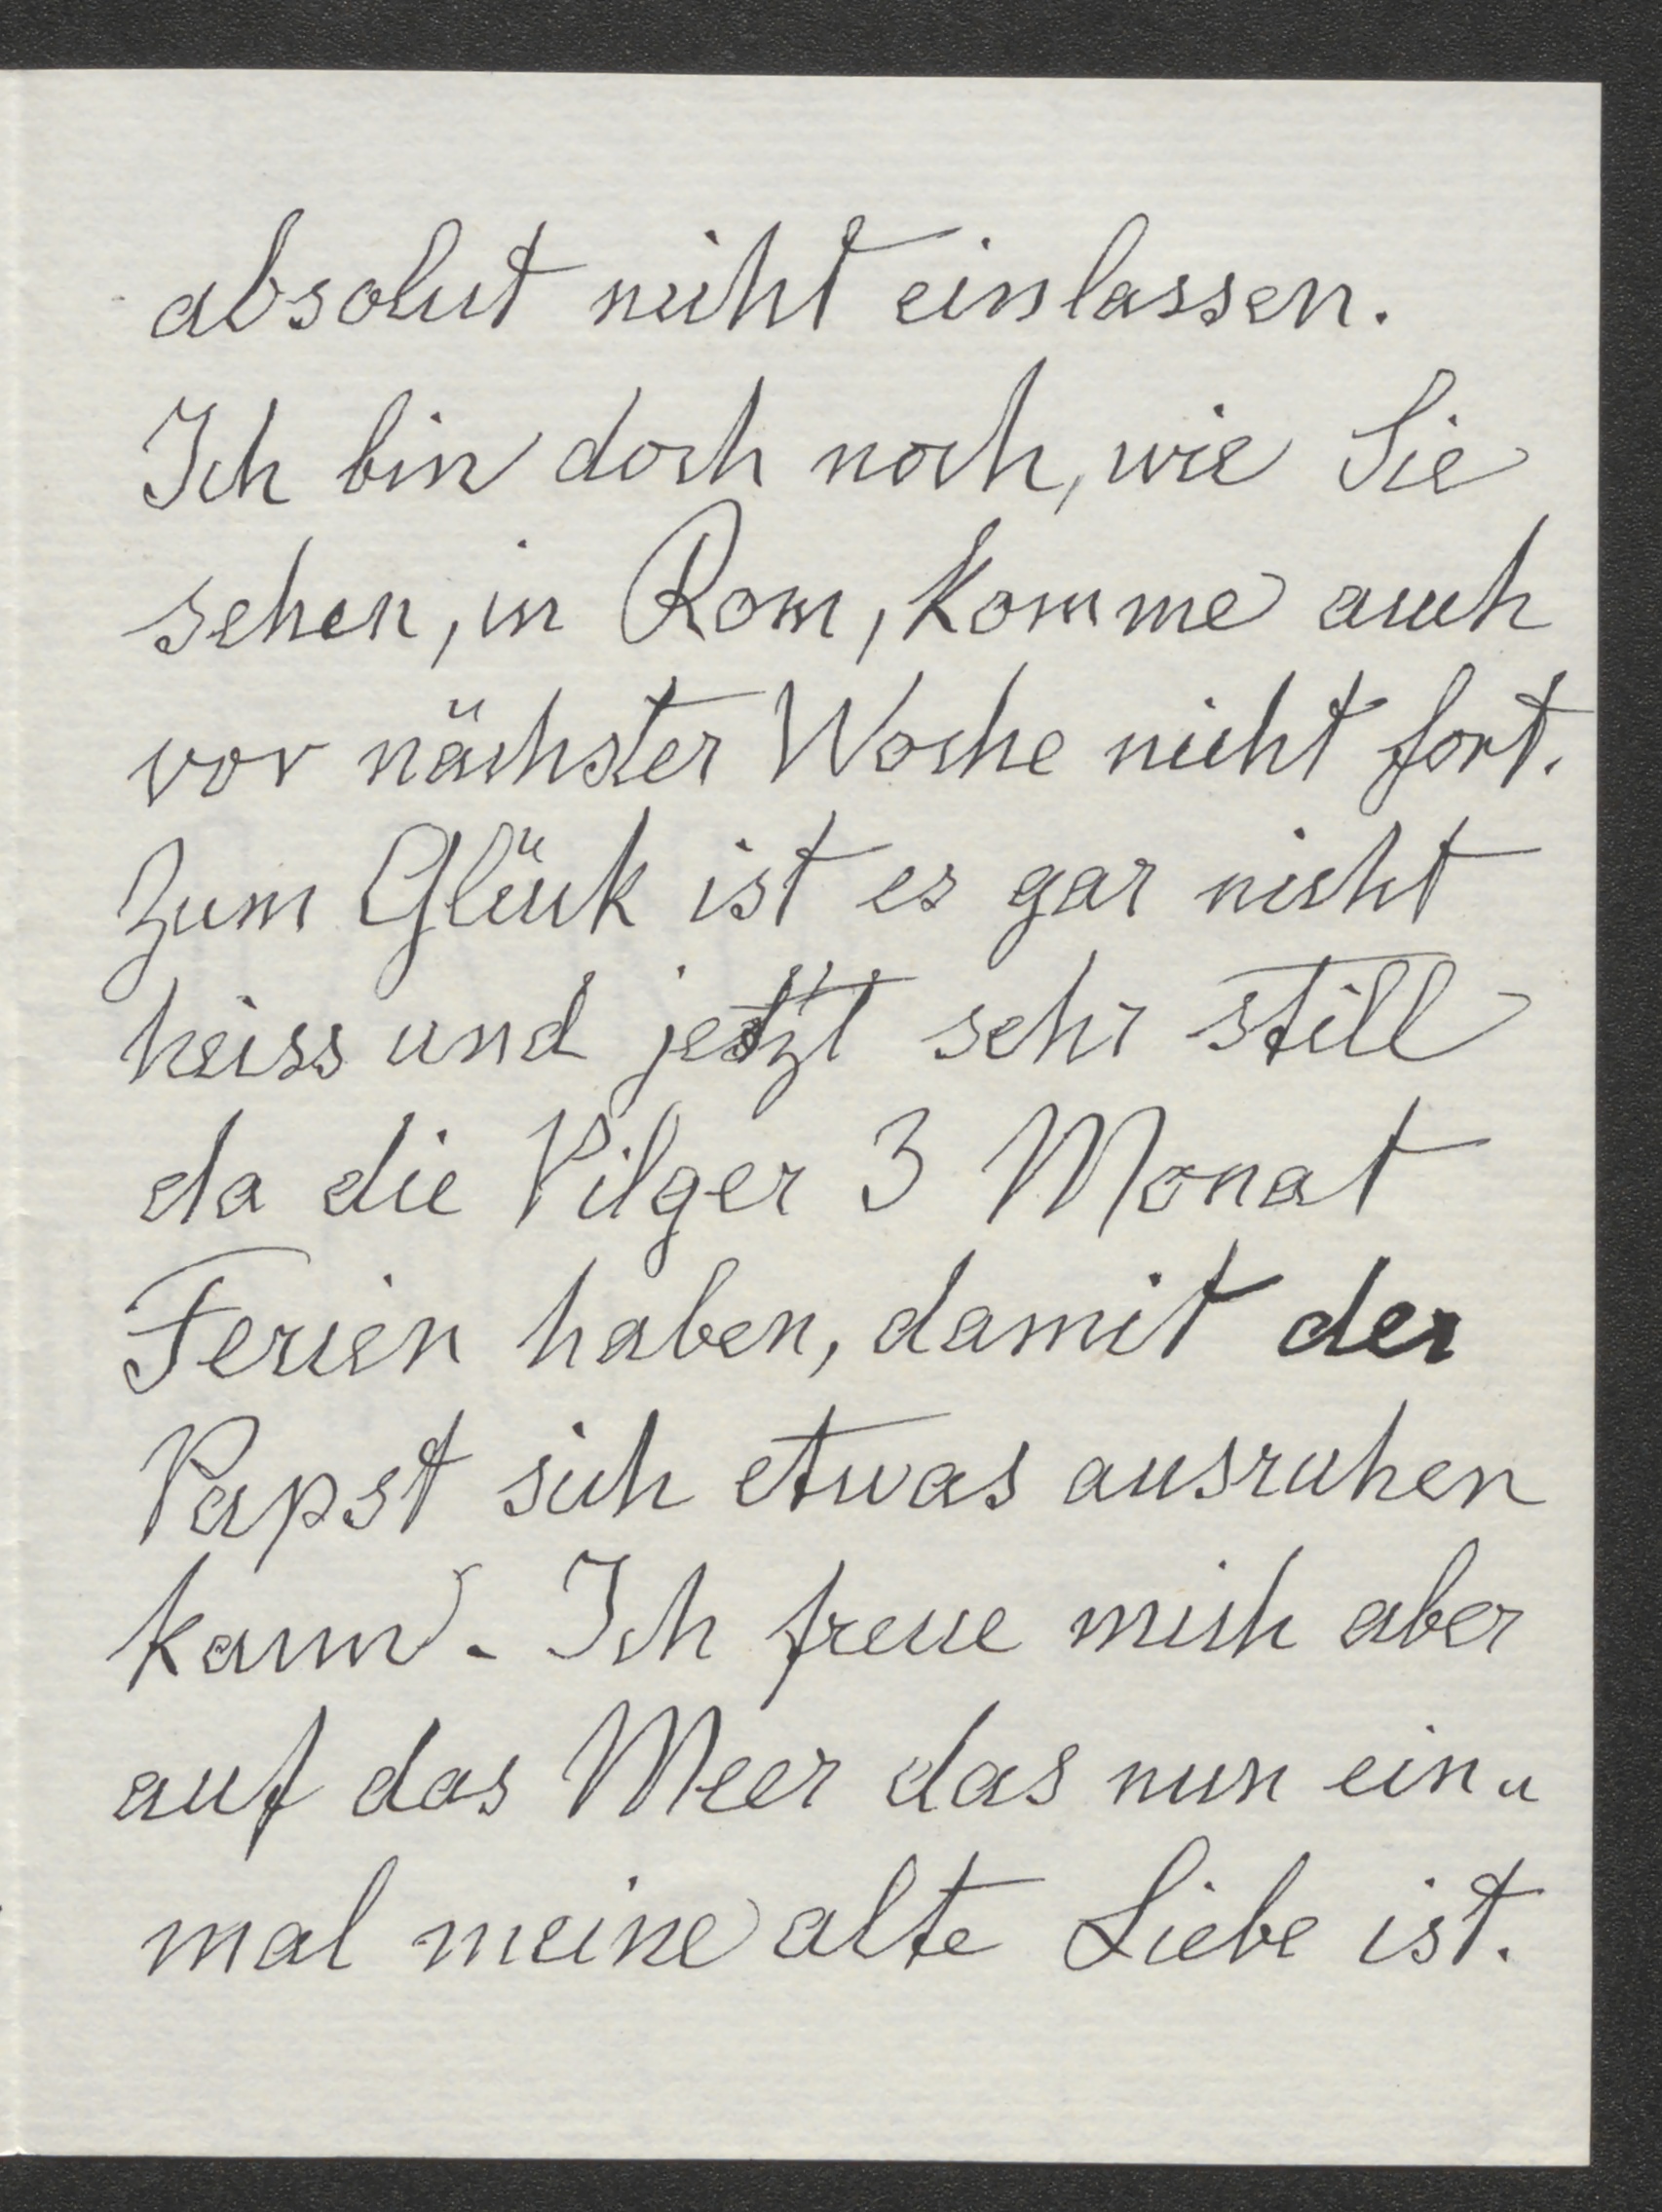 absolut nicht einlassen.
Ich bin doch noch, wie Sie
sehen, in Rom, komme auch
vor nächster Woche nicht fort.
Zum Glück ist es gar nicht
heiss und jetzt sehr still
da die Pilger 3 Monat
Ferien haben, damit der
Papst sich etwas ausruhen
kann. Ich freue mich aber
auf das Meer das nun ein-
mal meine alte Liebe ist.